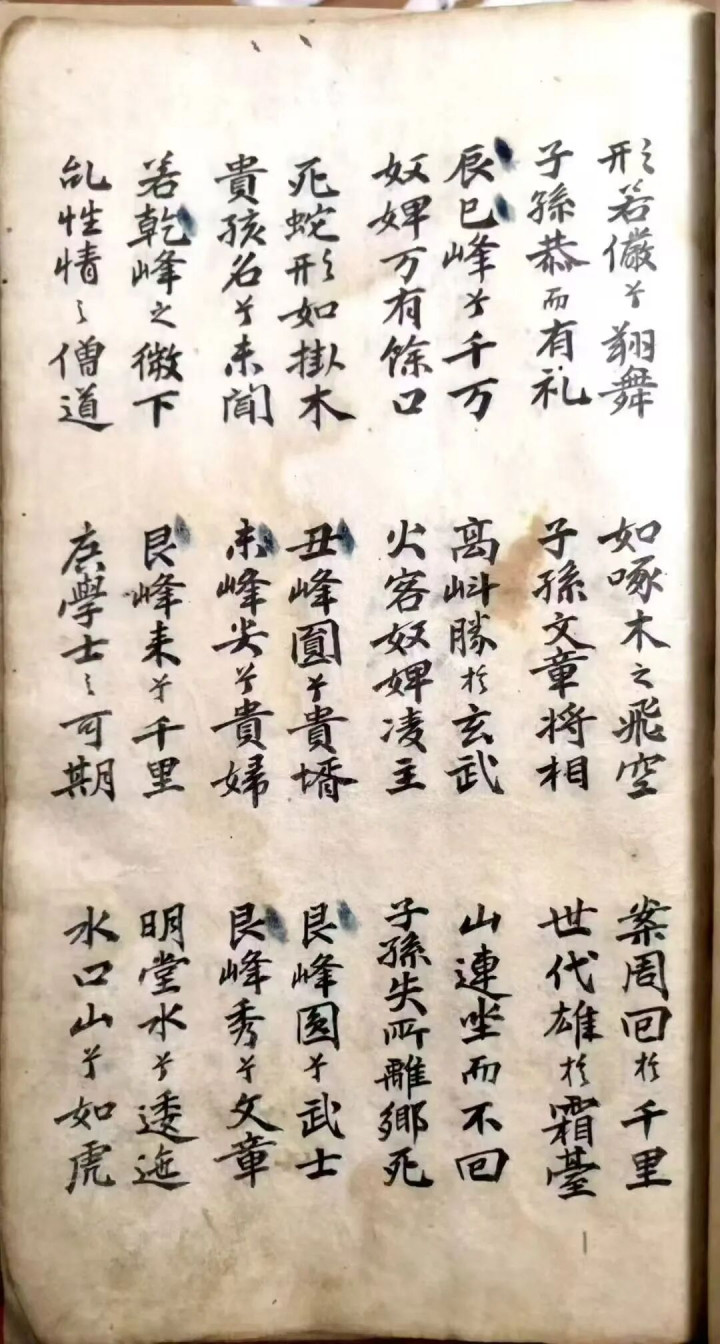 形若儼兮翔舞 如啄木之飛空 案周回於千里
子孫恭而有礼 子孫文章將相 世代雄於霜臺
辰巳峰兮千万 离勝於玄武 山連坐而不回
奴婢万有餘口 火客奴婢凌主 子孫失所離鄉死
死蛇形如掛木 丑峰圓兮貴壻 艮峰圓兮武士
貴孩名兮未聞 未峰尖兮貴婦 艮峰秀兮文章
若乾峰之微下 艮峰来兮千里 明堂水兮逶迤
乱性情之僧道 庶學士之可期 水口山兮如虎